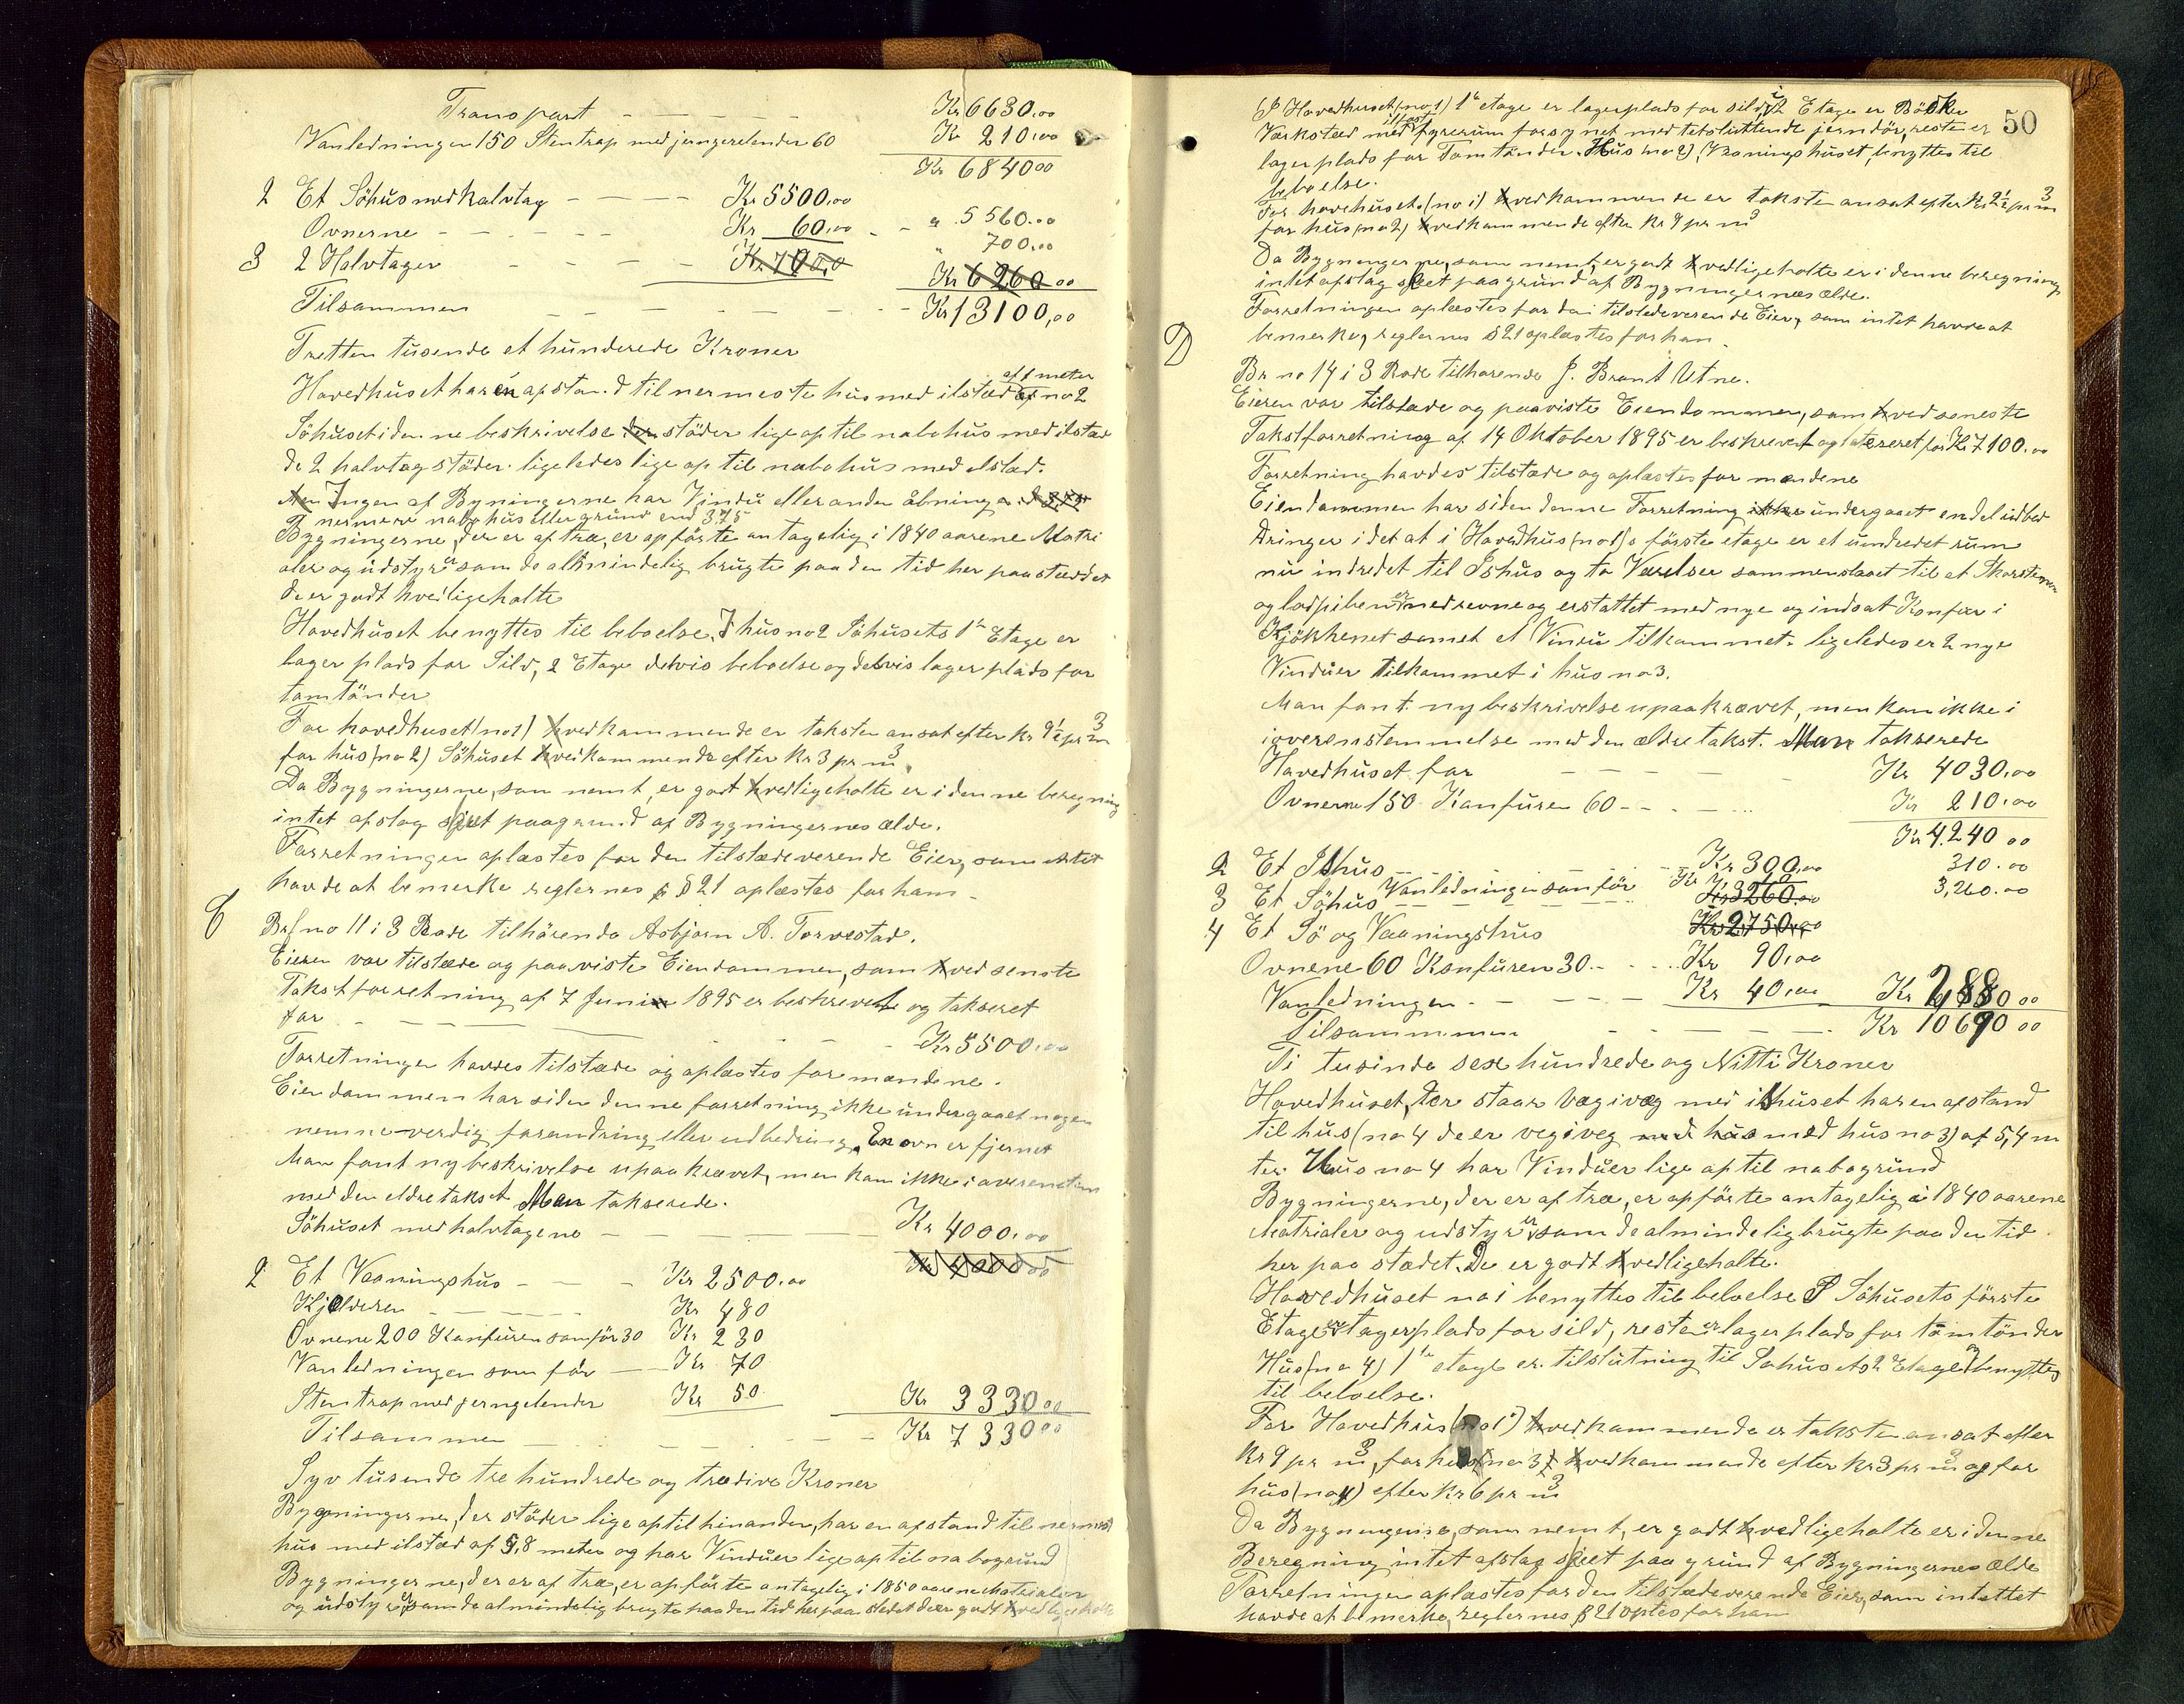 Transport - - - - Kr 6630,00
Vanledningen 150 Stentrap med jerngelender 60 Kr 210,00
Kr 6840 00
2 Et Söhus med halvtag - - - - Kr 5500,00
Ovnerne - - - - - Kr 60,00 - - " 5560,00
3 2 Halvtager - - - - Kr 700,0 " 700,00
Kr 6260 00
Tilsammen - - - - - - Kr 13100,00
Tretten tusende et hunderede Kroner
Hovedhuset har en afstand til nermeste hus med ilsted af no 2
Söhuset i denne beskrivelse der stöder lige op til nabohus med ilsted
de 2 halvtag stöder ligeledes lige op til nabohus med ilsted.
Ingen af Byningerne har Vindu eller anden åbninger
nermere nabohus eller grund end 3,75
Bygningerne, der er af træ, er opförte antagelig i 1840 aarene Matri
aler og udstyr er som de almindelig brugte paa den tid her paa stædet
de er godt hvedligeholte
Hovedhuset benyttes til beboelse, I hus no 2 Söhusets 1te Etage er
lager plads for Sild, 2 Etage delvis beboelse og delvis lager plads for
tomtönder
For hovedhuset (no 1) hvedkammende er taksten ansat efter kr 9½ pr m3
for hus (no 2) Söhuset hvedkammende efter kr 3 pr m3.
Da Bygningerne, som nemt, er godt hvedligeholte er i denne beregning
intet afslag skeet paa grund af Bygningernes ælde.
Forretningen oplæstes for den tilstædeverende Eier, som intet
havde at bemerke reglernes § 21 oplæstes for ham -
C Br no 11 i 3 Rode tilhörende Asbjørn A. Torvestad.
Eieren var tilstæde og paaviste Eiendommen, som hved senste
Takstforretning af 7 Juni 1895 er beskrevet og takseret
for - - - - - - Kr 5500,00
Forretningen havdes tilstæde og oplæstes for mændene.
Eiendommen har siden denne forretning ikke undergaaet nogen
nemneverdig forandring eller udbedring, En ovn er fjernet
Man fant ny beskrivelse upaakrævet, men kan ikke i overenstem
med den eldre takst Man takserede.
Söhuset med halvtagene - - - - - Kr 4000,00
Kr 4000 00
2 Et Vaaningshus - - - Kr 2500,00
Kjelderen - - - - - Kr 480
Ovnene 200 Konfuren som för 30 Kr 230
Vanledningen som för - - Kr 70
Stentrap med jerngelender Kr 50 Kr 3330 00
Tilsammen - - - - - Kr 7330 00
Syv tusende tre hundrede og tredive Kroner
Bygningerne, der stöder lige op til hinanden, har en afstand til nermest
hus med ilsted af 5,8 meter og har Vinduer lige op til nabogrund
Bygningerne, der er af træ, er opförte antagelig i 1850 aarene Materialer
og udstyr er som de almindelig brugte paa den tid her paa stedet de er godt hvedligeholte
50
I Hovedhuset (no 1) 1te etage er lagerplads for sild, i 2 Etage er Bödker
Værksted med ilfast fyrerum forsynet med tetsluttende jerndör, resten er
lagerplads for Tomtönder. Hus (no 2) Vaaningshuset, benyttes til
beboelse.
For hovehuset (no 1) hvedkammende er taksten ansat efter Kr 2½ pr m3
for hus (no 2) hvedkammende efter Kr 9 pr m3
Da Bygningerne, som nemt, er godt hvedligeholte er i denne beregning
intet afslag skeet paa grund af Bygningernes ælde.
Forretningen oplæstes for den tilstedeverende Eier, som intet havde at
bemerke, reglernes § 21 oplæstes for ham -
D
Br no 14 i 3 Rode tilhorende J. Brant Utne.
Eieren var tilstæde og paaviste Eiendommen, som hved seneste
Takstforretning af 14 Oktober 1895 er beskrevet og takseret for Kr 7100,00
Forretning havdes tilstæde og oplæstes for mændene
Eiendommen har siden denne Forretning ikke undergaaet endel udbed
dringer idet at i Hovedhus (no 1)s förste etage er et uindredet rum
nu indredet til Ishus og to Værelser sammenslaaet til et Skorstenen
og lodpiben er nedrevne og erstattet med nye og indsat Konfur i
Kjökkenet samt et Vindu tilkammet. ligeledes er 2 nye
Vinduer tilkammet i hus no 3.
Man fant ny beskrivelse upaakrævet, men kan ikke i
overenstemmelse med den ældre takst. Man takserede
Hovedhuset for - - - - - Kr 4030,00
Ovnerne 150 Konfuren 60 - - - - Kr 210,00
Kr 4240 00
2 Et Ishus - - - - Kr 300,00 310,00
Vanledningen som för Kr 10
3 Et Söhus - - - - Kr 3260,00 3,260,00
4 Et Sö og Vaaningshus Kr 2750,00
Ovnene 60 Konfuren 30 - - - Kr 90,00
Vanledningen - - - - - Kr 40,00 Kr 2,880 00
Tilsammen - - - - - Kr 10690 00
Ti tusinde sex hundrede og Nitti Kroner
Hovedhuset, der staar væg i væg med ishuset har en afstand
til hus (no 4 de er veg i veg med hus no 3) af 5,4 m
ter. Hus no 4 har Vinduer lige op til nabogrund
Bygningerne, der er af træ, er opförte antagelig i 1840 aarene
Matrialer og udstyr er som de almindelig brugte paa den tid
her paa stædet. De er godt hvedligeholte.
Hovedhuset no 1 benyttes til beboelse I Söhusets förste
Etage er lagerplads for sild, resten er lagerplads for tomtönder
Hus (no 4) 1te etage er tilslutning til Söhusets 2 Etage og benyttes
til beboelse.
For Hovedhus (no 1) hvedkammende er taksten ansat efter
kr 9 pr m3, for hus (no 3) hvedkammende efter kr 3 pr m3 og for
hus (no 4) efter Kr 6 pr m3
Da Bygningerne, som nemt, er godt hvedligeholte er i denne
Beregning intet afslag skeet paa grund af Bygningernes ælde
Forretningen oplæstes for den tilstædeverende Eier, som intettet
havde at bemerke, reglernes § 21 oplæstes for ham